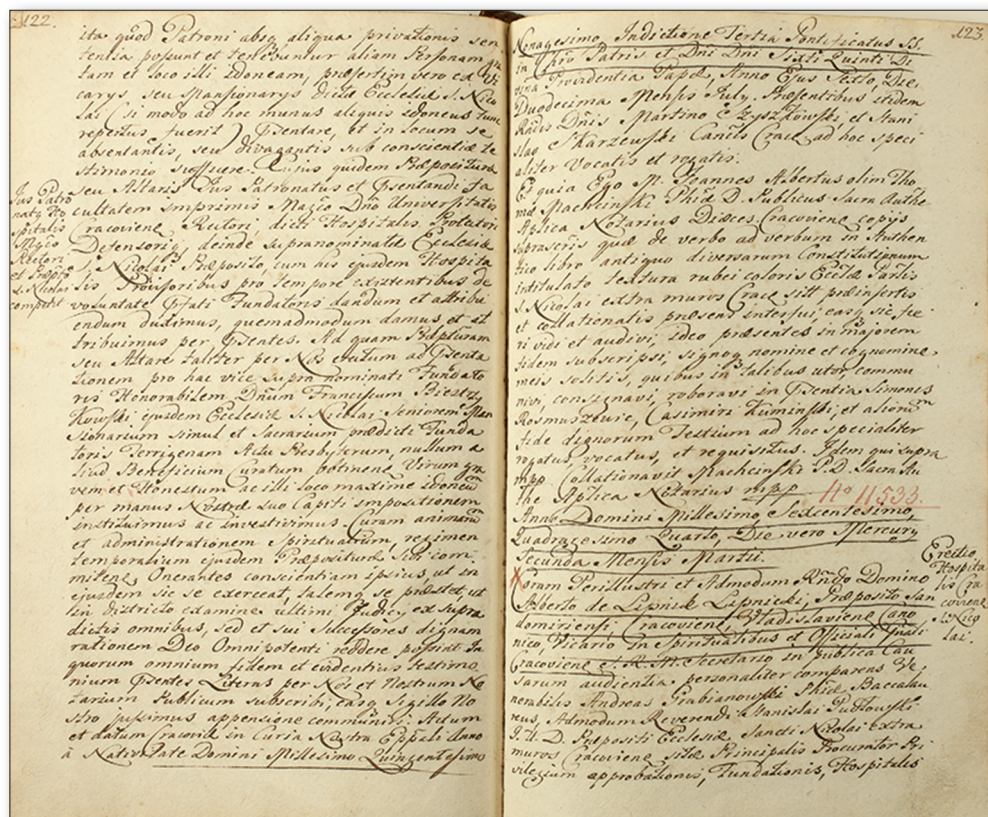 122.
ita quod Patroni absq aliqua privationis sen
tentia possunt et tenebuntur aliam Personam
tam et loco illi Idoneam, præsertim vero ex vi
carys seu Mansionarys dictæ Ecclesiæ S. Nico
lai (si modo ad hoc munus aliquis idoneus tunc
repertus fuerit) Psentare, et in locum se
absentantis, seu divagantis sub conscientiæ te
stimonio sufficere. Cuius quidem Præposituræ
seu Altaris Jus Patronatus et Psentandi fa
cultatem imprimis Magco Dno Universitatis
Cracovien Rectori, dicti Hospitalis
deinde supranominatæ Ecclesiæ
S. Nicolai Præposito, cum his ejusdem Hospita
lis Provisoribus pro tempore existentibus de
voluntate Pfati Fundatoris dandum et attribu
endum duximus, quemadmodum damus et at
tribuimus per Psentes. Ad quam Præpturam
seu Altare taliter per Nos erectum ad Psenta
tionem pro hac vice supra nominati Fundato
ris Honorabilem Dnum Franciscum Biestrzy
kowski ejusdem Ecclesiæ S. Nicolai Seniorem Man
sionarium simul et Sacrarium, prædicti Funda
toris Terrigenam Actu Presbyterum, nullum a
liud Beneficium Curatum obtinene Virum gra
vem et Honestum ac illi loco maxime idoneum
per manus Nostræ suo Capiti impositionem
instituimus ac investivimus Curam animarum
et administrationem Spirituarum, regimen
temporalium ejusdem Præposituræ Sibi com
mitene, Onerantes conscientiam ipsius, ut in
ejusdem sic se exerceat, talemq se præstet, ut
in districto examine ultimi Judicy, ex supra
dictis omnibus, sed et sui Successores dignam
rationem Deo Omnipotenti reddere possint. In
quorum omnium fidem et evidentius testimo
nium Psentes Literas per Nos et Nostrum No
tarium Publicum subscribi, easq Sigillo No
stro jussimus appensione communiri. Actum
et datum Cracoviæ in Curia Nostra Eppali Anno
a Nativitate Domini Millesimo Quingentesimo
Jus Patro
natq Ho
spitalis
Magco
Rectori
et Præpto
S. Nicolai
competit
123
Nonagesimo, Indictione Tertia Pontificatus SS.
in Chro Patris et Dni Dni Sixti Quinti Di
vina Providentia Papæ, Anno Ejus Sexto, Die
Duodecima Mensis July. Præsentibus itidem
Rndis Dnis Martino Szyszkowski, et Stani
slao Skarzewski Cancis Crac ad hoc speci
aliter Vocatis et rogatis.
Et quia Ego M. Joannes Albertus olim Tho
mæ Machinski Phiæ D. Publicus Sacra Authe
Aplica Notarius Diæces Cracovien copys
suprascris quæ de verbo ad verbum in Authen
tico libro antiquo diversarum Constitutionum
intitulato textura rubei coloris Ecclæ Parlis
S. Nicolai extra muros Crac sitt præinsertis
et collationatis præsens interfui, easq sic fie
ri vidi et audivi, ideo præsentes in majorem
fidem subscripsi, signoq nomine et cognomine
meis solitis, quibus in talibus utor, commu
nivi, consignavi, roboravi in Psentia Simonis
Casimiri Kuminski, et aliorum
fide dignorum Testium ad hoc specialiter
rogatus, vocatus, et requisitus. Idem qui supra
mpp. Collationavit Machcinski P.D. Sacra Au
the Aplica Notarius mpp N° 11533.
Anno Domini Millesimo Sexcentesimo
Quadragesimo Quarto, Die vero Mercury
Secunda Mensis Martii.
Coram Perillustri et Admodum Rndo Domino
Alberto de Lipniek Lipnicki, Præposito San
domiriensi, Cracovien, Vladislavien Cano
nico, Vicario in Spiritualibus et Officiali Gnali
Cracovien S. R. M. Secretario in publica Cau
sarum audientia personaliter comparens Ve
nerabilis Andreas Grabianowski Phiæ Baccalau
reus, Admodum Reverendi Stanislai Pudlowski
J. U. D. Præpositi Ecclesiæ Sancti Nicolai extra
muros Cracovien sitæ Principalis Procurator Pri
vilegium approbationis, Fundationis, Hospitalis
Erectio
Hospita
lis Cra
covien
S. Nico
lai.